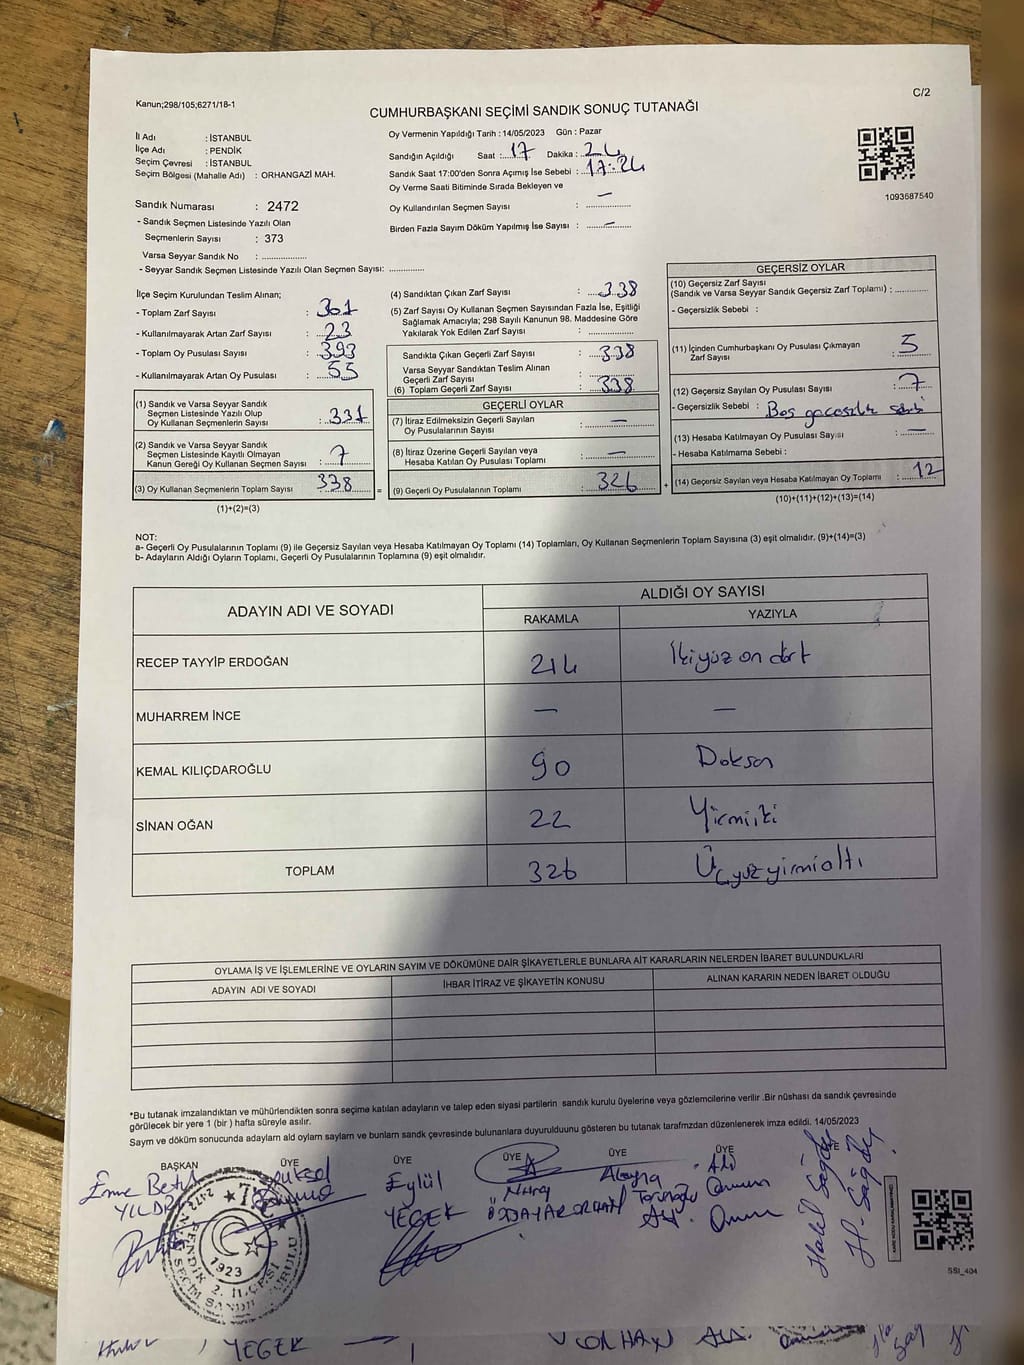 Kanun;298/105;6271/18-1
C/2
CUMHURBAŞKANI SEÇİMİ SANDIK SONUÇ TUTANAĞI
İl Adı : İSTANBUL
İlçe Adı : PENDİK
Seçim Çevresi : İSTANBUL
Seçim Bölgesi (Mahalle Adı) : ORHANGAZİ MAH.
Sandık Numarası : 2472
- Sandık Seçmen Listesinde Yazılı Olan
Seçmenlerin Sayısı : 373
Varsa Seyyar Sandık No : ..............
- Seyyar Sandık Seçmen Listesinde Yazılı Olan Seçmen Sayısı: ............
Oy Vermenin Yapıldığı Tarih : 14/05/2023 Gün : Pazar
Sandığın Açıldığı Saat : 17 Dakika : 24
Sandık Saat 17:00'den Sonra Açımış İse Sebebi : 17:24
Oy Verme Saati Bitiminde Sırada Bekleyen ve
Oy Kullandırılan Seçmen Sayısı : —
Birden Fazla Sayım Döküm Yapılmış İse Sayısı : —
1093687540
İlçe Seçim Kurulundan Teslim Alınan;
- Toplam Zarf Sayısı : 361
- Kullanılmayarak Artan Zarf Sayısı : 23
- Toplam Oy Pusulası Sayısı : 393
- Kullanılmayarak Artan Oy Pusulası : 55
(1) Sandık ve Varsa Seyyar Sandık
Seçmen Listesinde Yazılı Olup
Oy Kullanan Seçmenlerin Sayısı : 331
(2) Sandık ve Varsa Seyyar Sandık
Seçmen Listesinde Kayıtlı Olmayan
Kanun Gereği Oy Kullanan Seçmen Sayısı : 7
(3) Oy Kullanan Seçmenlerin Toplam Sayısı 338 =
(1)+(2)=(3)
(4) Sandıktan Çıkan Zarf Sayısı : 338
(5) Zarf Sayısı Oy Kullanan Seçmen Sayısından Fazla İse, Eşitliği
Sağlamak Amacıyla; 298 Sayılı Kanunun 98. Maddesine Göre
Yakılarak Yok Edilen Zarf Sayısı : ..............
Sandıkta Çıkan Geçerli Zarf Sayısı : 338
Varsa Seyyar Sandıktan Teslim Alınan
Geçerli Zarf Sayısı : ..............
(6) Toplam Geçerli Zarf Sayısı : 338
GEÇERLİ OYLAR
(7) İtiraz Edilmeksizin Geçerli Sayılan
Oy Pusulalarının Sayısı : —
(8) İtiraz Üzerine Geçerli Sayılan veya
Hesaba Katılan Oy Pusulası Toplamı : —
(9) Geçerli Oy Pusulalarının Toplamı : 326 +
GEÇERSİZ OYLAR
(10) Geçersiz Zarf Sayısı
(Sandık ve Varsa Seyyar Sandık Geçersiz Zarf Toplamı) : ............
- Geçersizlik Sebebi :
(11) İçinden Cumhurbaşkanı Oy Pusulası Çıkmayan
Zarf Sayısı : 5
(12) Geçersiz Sayılan Oy Pusulası Sayısı : 7
- Geçersizlik Sebebi : Boş
(13) Hesaba Katılmayan Oy Pusulası Sayısı : —
- Hesaba Katılmama Sebebi :
(14) Geçersiz Sayılan veya Hesaba Katılmayan Oy Toplamı : 12
(10)+(11)+(12)+(13)=(14)
NOT:
a- Geçerli Oy Pusulalarının Toplamı (9) ile Geçersiz Sayılan veya Hesaba Katılmayan Oy Toplamı (14) Toplamları, Oy Kullanan Seçmenlerin Toplam Sayısına (3) eşit olmalıdır. (9)+(14)=(3)
b- Adayların Aldığı Oyların Toplamı, Geçerli Oy Pusulalarının Toplamına (9) eşit olmalıdır.
ADAYIN ADI VE SOYADI ALDIĞI OY SAYISI
RAKAMLA YAZIYLA
RECEP TAYYİP ERDOĞAN 214 İkiyüz on dört
MUHARREM İNCE — —
KEMAL KILIÇDAROĞLU 90 Doksan
SİNAN OĞAN 22 Yirmiiki
TOPLAM 326 Üçyüzyirmialtı
OYLAMA İŞ VE İŞLEMLERİNE VE OYLARIN SAYIM VE DÖKÜMÜNE DAİR ŞİKAYETLERLE BUNLARA AİT KARARLARIN NELERDEN İBARET BULUNDUKLARI
ADAYIN ADI VE SOYADI İHBAR İTİRAZ VE ŞİKAYETİN KONUSU ALINAN KARARIN NEDEN İBARET OLDUĞU
*Bu tutanak imzalandıktan ve mühürlendikten sonra seçime katılan adayların ve talep eden siyasi partilerin sandık kurulu üyelerine veya gözlemcilerine verilir .Bir nüshası da sandık çevresinde
görülecek bir yere 1 (bir ) hafta süreyle asılır.
Sayım ve döküm sonucunda adayların ald oyların sayların ve bunların sandk çevresinde bulunanlara duyurulduunu gösteren bu tutanak tarafmzdan düzenlenerek imza edildi. 14/05/2023
BAŞKAN ÜYE ÜYE ÜYE ÜYE
Emre Betül Yüksel Eylül Nuray Ali
YILDIZ YEGEK Halil Sağdıç
H. Sağdıç
2472 PENDİK 2. İLÇESİ SEÇİM SANDIK KURULU
1923
SSI_404
YEGEK ORHAN